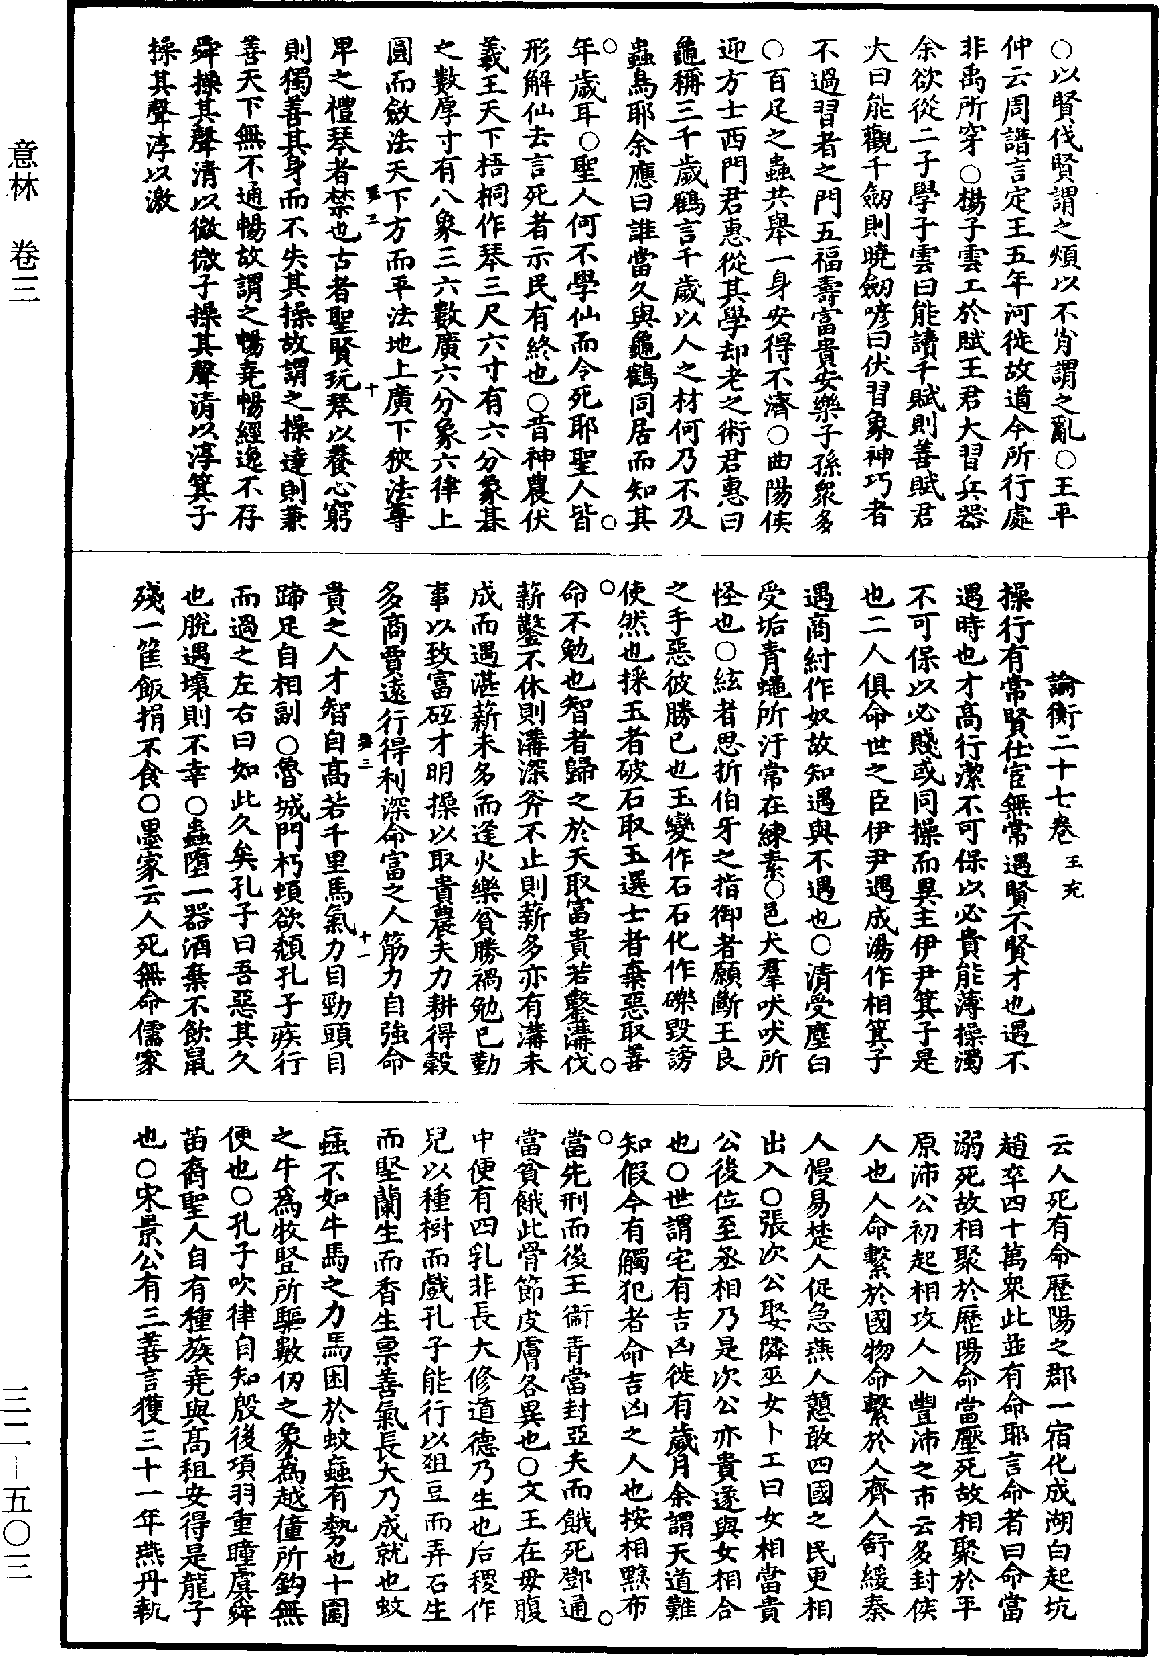 ○以賢伐賢謂之煩以不肖謂之亂○王平
仲云周譜言定王五年河徙故道今所行處
非禹所穿○楊子雲工於賦王君大習兵器
余欲從二子學子雲曰能讀千賦則善賦君
大曰能觀千劒則曉劒諺曰伏習象神巧者
不過習者之門五福壽富貴安樂子孫衆多
○百足之蟲共舉一身安得不濟○曲陽侯
迎方士西門君惠從其學却老之術君惠曰
龜稱三千歲鶴言千歲以人之材何乃不及
蟲鳥耶余應曰誰當久與龜鶴同居而知其
年歲耳○聖人何不學仙而令死耶聖人皆
形解仙去言死者示民有終也○昔神農伏
羲王天下梧桐作琴三尺六寸有六分象朞
之數厚寸有八象三六數廣六分象六律上
圓而斂法天下方而平法地上廣下狹法尊
卑之禮琴者禁也古者聖賢玩琴以養心窮
則獨善其身而不失其操故謂之操達則兼
善天下無不通暢故謂之暢堯暢經逸不存
舜操其聲清以微微子操其聲清以淳箕子
操其聲淳以激
論衡二十七卷 王充
操行有常賢仕宦無常遇賢不賢才也遇不
遇時也才高行潔不可保以必貴能薄操濁
不可保以必賤或同操而異主伊尹箕子是
也二人俱命世之臣伊尹遇成湯作相箕子
遇商紂作奴故知遇與不遇也○清受塵白
受垢青蠅所汙常在練素○邑犬羣吠吠所
怪也○絃者思折伯牙之指御者願斷王良
之手惡彼勝已也玉變作石石化作礫毀謗
使然也採玉者破石取玉選士者棄惡取善
命不勉也智者歸之於天取富貴若鑿溝伐
薪鑿不休則溝深斧不止則薪多亦有溝未
成而遇湛薪未多而逢火樂貧勝禍勉已勤
事以致富砥才明操以取貴農夫力耕得穀
多商賈遠行得利深命富之人筋力自強命
貴之人才智自高若千里馬氣力目勁頭目
蹄足自相副○魯城門朽頓欲頹孔子疾行
而過之左右曰如此久矣孔子曰吾惡其久
也脫遇壞則不幸○蟲墮一器酒棄不飲鼠
殘一筐飯捐不食○墨家云人死無命儒家
云人死有命歷陽之郡一宿化成湖白起坑
趙卒四十萬衆此並有命耶言命者曰命當
溺死故相聚於歷陽命當壓死故相聚於平
原沛公初起相攻人入豐沛之市云多封侯
人也人命繫於國物命繫於人齊人舒緩秦
人慢易楚人促急燕人戇敢四國之民更相
出入○張次公娶隣巫女卜工曰女相當貴
公後位至丞相乃是次公亦貴遂與女相合
也○世謂宅有吉凶徙有歲月余謂天道難
知假令有觸犯者命吉凶之人也按相黥布
當先刑而後王衞青當封亞夫而餓死鄧通
當貧餓此骨節皮膚各異也○文王在母腹
中便有四乳非長大修道德乃生也后稷作
兒以種樹而戲孔子能行以俎豆而弄石生
而堅蘭生而香生禀善氣長大乃成就也蚊
蝱不如牛馬之力馬困於蚊蝱有勢也十圍
之牛爲牧豎所驅數仞之象爲越僮所鈎無
便也○孔子吹律自知殷後項羽重瞳虞舜
苗裔聖人自有種族堯與高祖安得是龍子
也○宋景公有三善言獲三十一年燕丹執
第三
十
第三
十一
意林 卷三
三二-五〇三